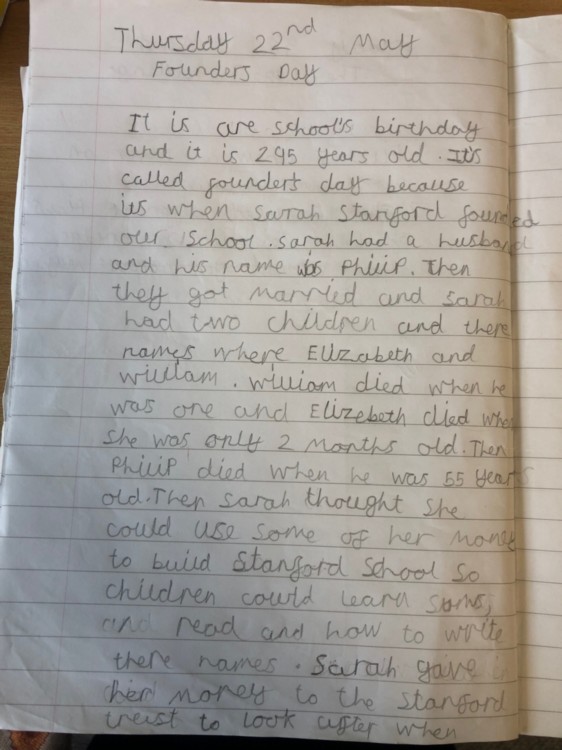 Thursday 22nd May
Founders Day
It is are school's birthday
and it is 295 years old. It's
called founder's day because
its when sarah Stanford founded
our school. sarah had a husband
and his name was Philip. Then
they got married and sarah
had two children and there
names where Elizabeth and
william. william died when he
was one and Elizebeth died when
she was only 2 months old. Then
Philip died when he was 55 years
old. Then sarah thought she
could use some of her money
to build Stanford School so
children could learn sums,
and read and how to write
there names. Sarah gave
her money to the Stanford
trust to look after when